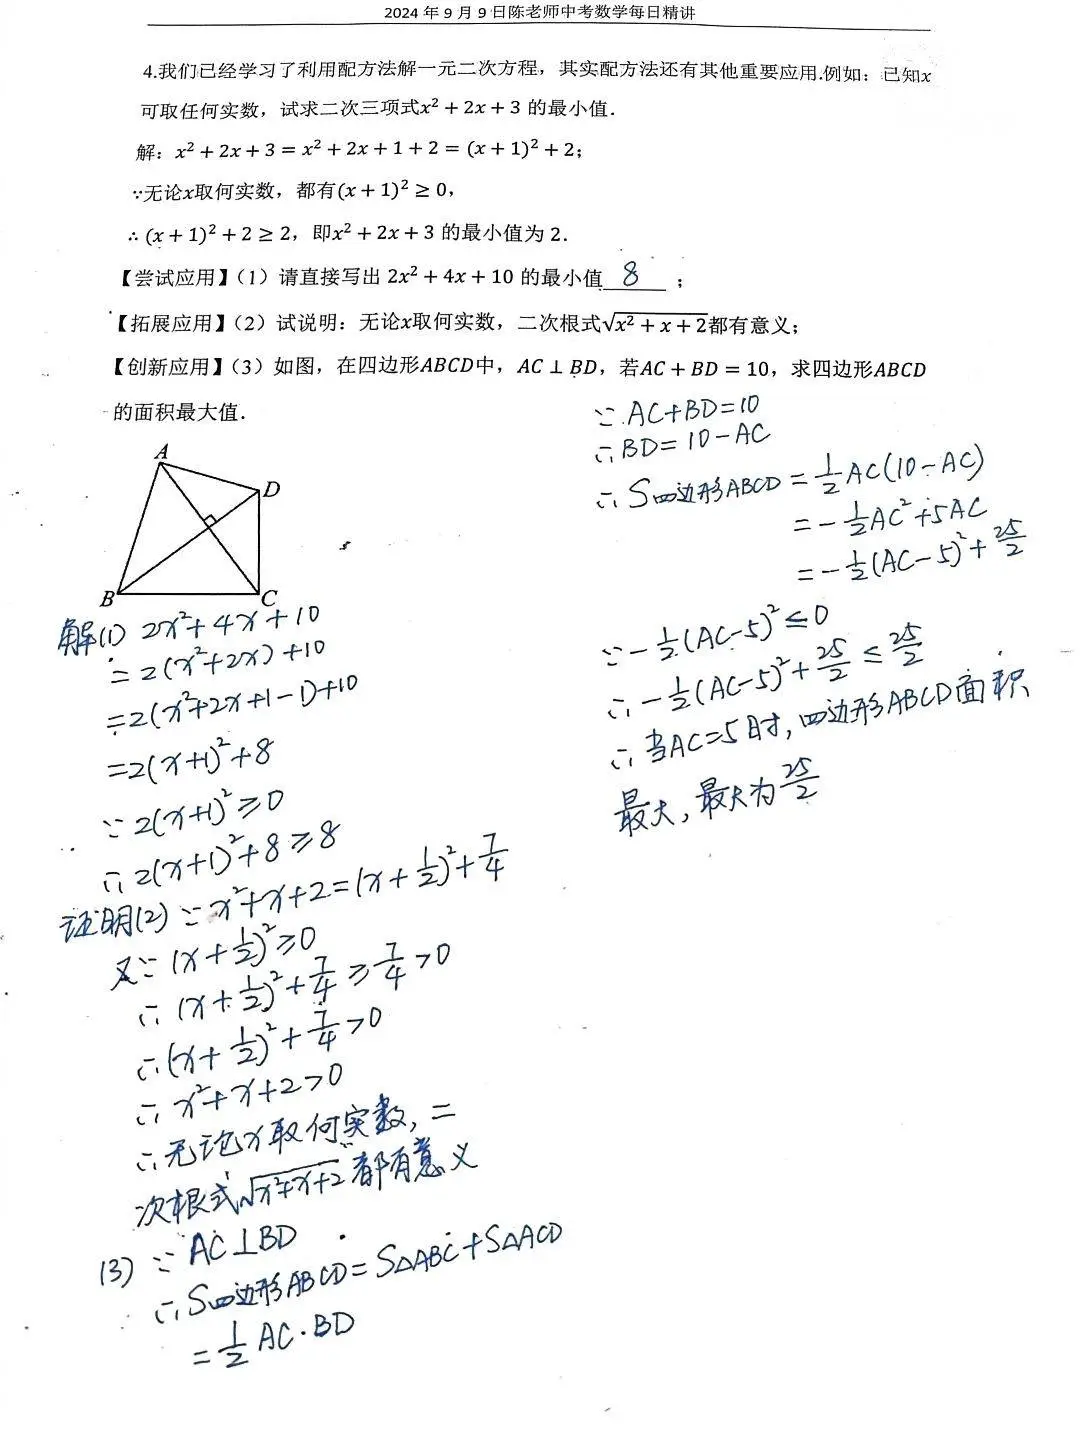 2024年9月9日陈老师中考数学每日精讲
4.我们已经学习了利用配方法解一元二次方程，其实配方法还有其他重要应用.例如：已知x
可取任何实数，试求二次三项式x² + 2x + 3 的最小值.
解：x² + 2x + 3 = x² + 2x + 1 + 2 = (x + 1)² + 2；
∵无论x取何实数，都有(x + 1)² ≥ 0，
∴ (x + 1)² + 2 ≥ 2，即x² + 2x + 3 的最小值为 2.
【尝试应用】（1）请直接写出 2x² + 4x + 10 的最小值 8 ；
【拓展应用】（2）试说明：无论x取何实数，二次根式√(x² + x + 2)都有意义；
【创新应用】（3）如图，在四边形ABCD中，AC ⊥ BD，若AC + BD = 10，求四边形ABCD
的面积最大值.
A
D
B
C
解(1) 2x²+4x+10
=2(x²+2x)+10
=2(x²+2x+1-1)+10
=2(x+1)²+8
∵2(x+1)²≥0
∴2(x+1)²+8≥8
证明(2) ∵x²+x+2=(x+1/2)²+7/4
又∵(x+1/2)²≥0
∴(x+1/2)²+7/4≥7/4>0
∴(x+1/2)²+7/4>0
∴x²+x+2>0
∴无论x取何实数，二
次根式√(x²+x+2)都有意义
(3) ∵AC⊥BD
∴S四边形ABCD=S△ABC+S△ACD
=1/2 AC·BD
∵AC+BD=10
∴BD=10-AC
∴S四边形ABCD=1/2 AC(10-AC)
=-1/2 AC²+5AC
=-1/2(AC-5)²+25/2
∵-1/2(AC-5)²≤0
∴-1/2(AC-5)²+25/2≤25/2
∴当AC=5时，四边形ABCD面积
最大，最大为25/2